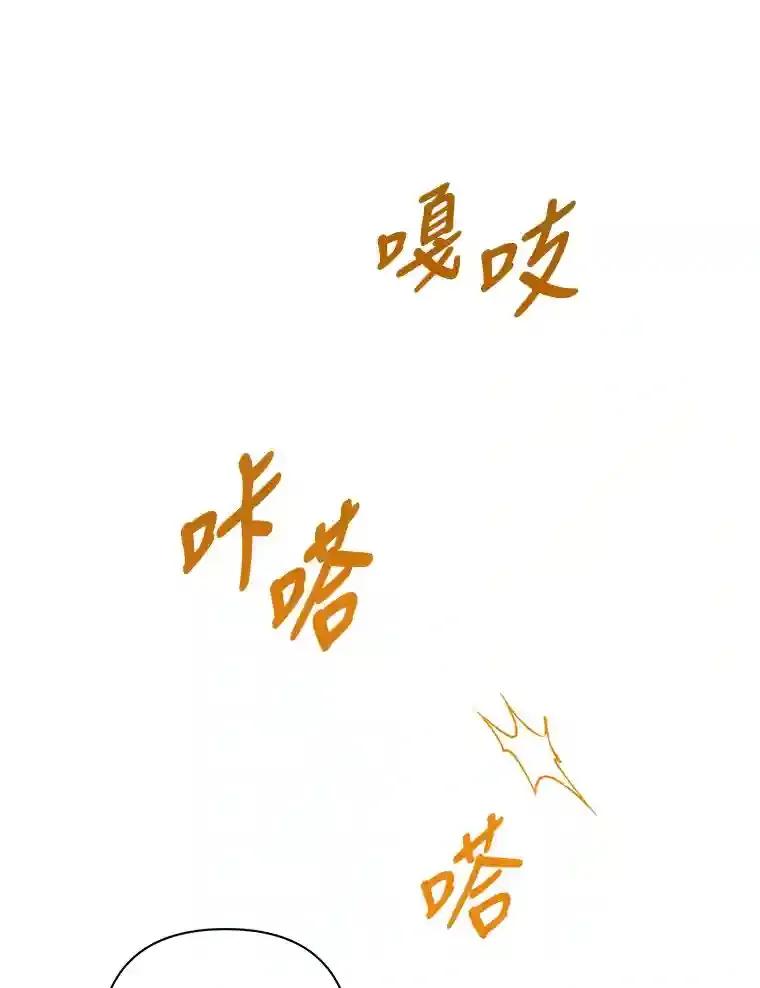 嘎吱
咔嗒
嗒